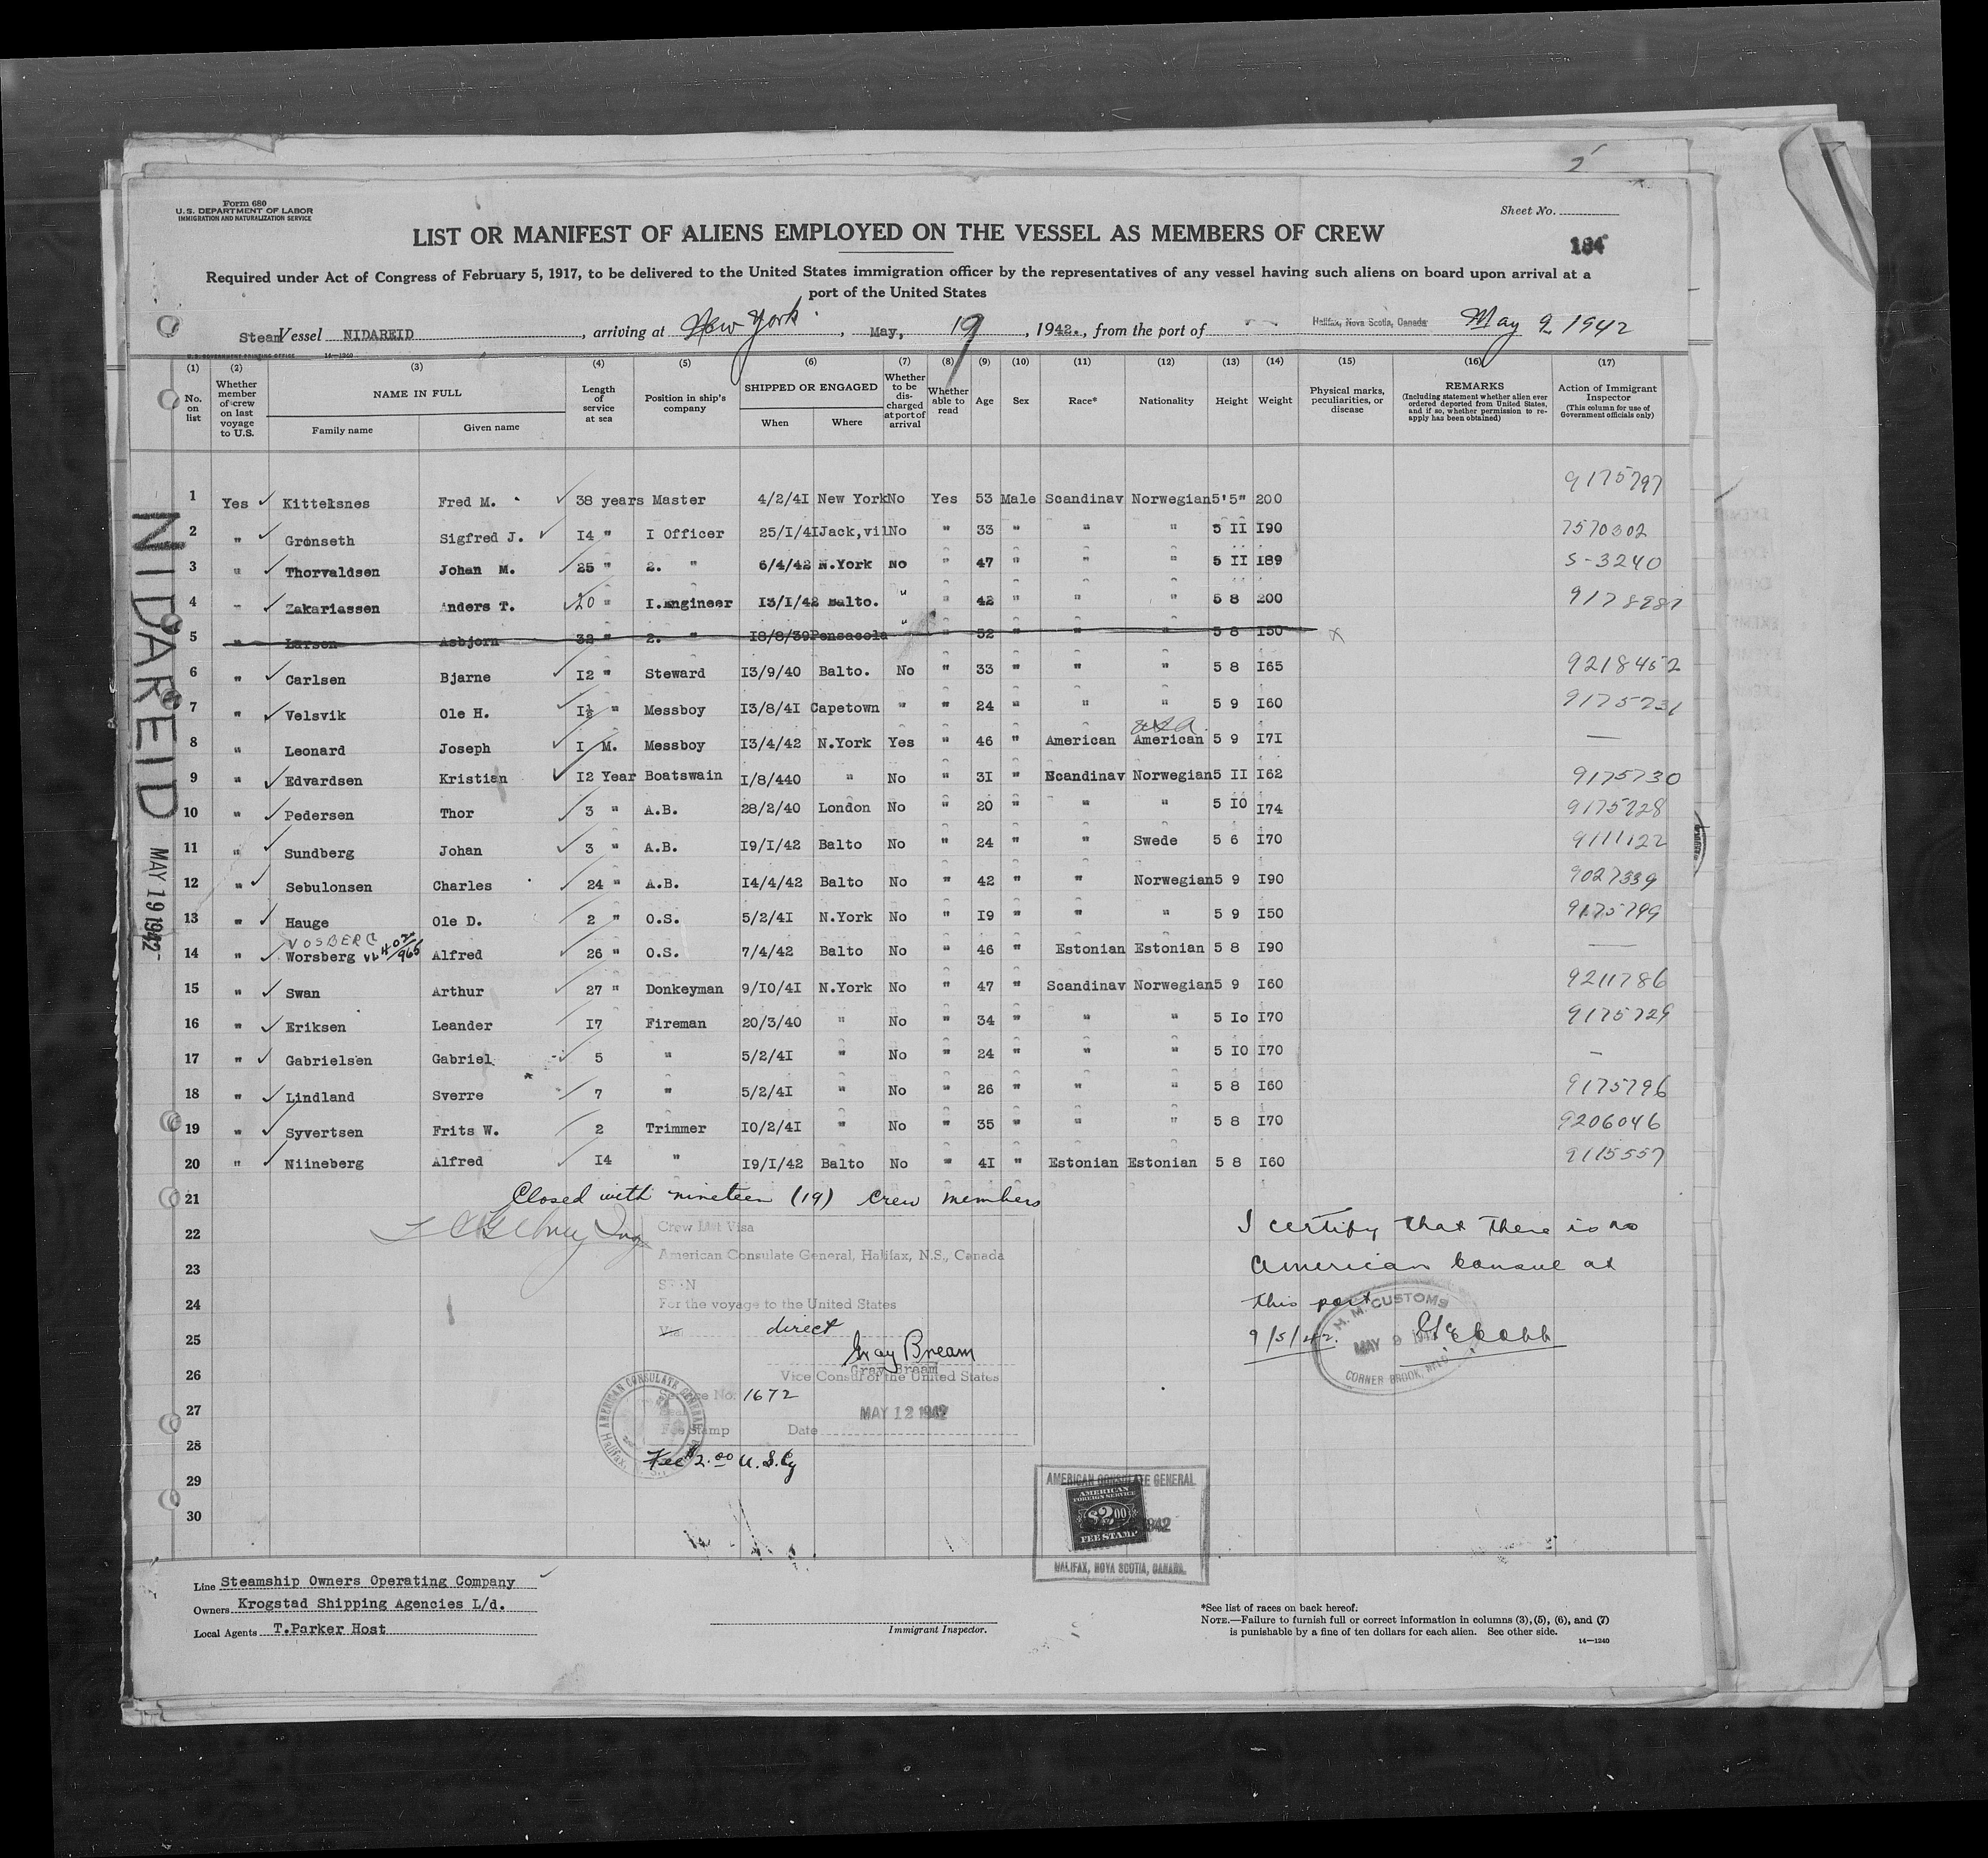 2
Form 680
U.S. DEPARTMENT OF LABOR
IMMIGRATION AND NATURALIZATION SERVICE
Sheet No.
LIST OR MANIFEST OF ALIENS EMPLOYED ON THE VESSEL AS MEMBERS OF CREW
184
Required under Act of Congress of February 5, 1917, to be delivered to the United States immigration officer by the representatives of any vessel having such aliens on board upon arrival at a
port of the United States
Steam Vessel NIDAREID, arriving at New York, May, 19, 1942., from the port of Halifax, Nova Scotia, Canada May 9, 1942
U.S. GOVERNMENT PRINTING OFFICE 14—1240
(1) (2) (3) (4) (5) (6) (7) (8) (9) (10) (11) (12) (13) (14) (15) (16) (17)
No. on list
Whether member of crew on last voyage to U.S.
NAME IN FULL
Family name Given name
Length of service at sea
Position in ship's company
SHIPPED OR ENGAGED
When Where
Whether to be discharged at port of arrival
Whether able to read
Age
Sex
Race*
Nationality
Height
Weight
Physical marks, peculiarities, or disease
REMARKS
(Including statement whether alien ever ordered deported from United States, and if so, whether permission to re-apply has been obtained)
Action of Immigrant Inspector
(This column for use of Government officials only)
1 Yes Kittelsnes Fred M. 38 years Master 4/2/4I New York No Yes 53 Male Scandinav Norwegian 5'5" 200 9175797
2 " Grønseth Sigfred J. I4 " I Officer 25/I/4I Jack,vil No " 33 " " " 5 II I90 7570302
3 " Thorvaldsen Johan M. 25 " 2. " 6/4/42 N.York No " 47 " " " 5 II I89 S-3240
4 " Zakariassen Anders T. 20 " I.Engineer I3/I/42 Balto. " " 42 " " " 5 8 200 9178987
5 " Larsen Asbjorn 32 " 2. " I8/8/39 Pensacola " " 52 " " " 5 8 I50 x
6 " Carlsen Bjarne I2 " Steward I3/9/40 Balto. No " 33 " " " 5 8 I65 9218452
7 " Velsvik Ole H. I½ " Messboy I3/8/4I Capetown " " 24 " " " 5 9 I60 9175231
8 " Leonard Joseph I M. Messboy I3/4/42 N.York Yes " 46 " American American 5 9 I7I —
9 " Edvardsen Kristian I2 Year Boatswain I/8/440 " No " 3I " Scandinav Norwegian 5 II I62 9175730
10 " Pedersen Thor 3 " A.B. 28/2/40 London No " 20 " " " 5 I0 I74 9175728
11 " Sundberg Johan 3 " A.B. I9/I/42 Balto No " 24 " " Swede 5 6 I70 9111122
12 " Sebulonsen Charles 24 " A.B. I4/4/42 Balto No " 42 " " Norwegian 5 9 I90 9027339
13 " Hauge Ole D. 2 " O.S. 5/2/4I N.York No " I9 " " " 5 9 I50 9175799
VOSBERG
14 " Worsberg Alfred 26 " O.S. 7/4/42 Balto No " 46 " Estonian Estonian 5 8 I90 —
15 " Swan Arthur 27 " Donkeyman 9/I0/4I N.York No " 47 " Scandinav Norwegian 5 9 I60 9211786
16 " Eriksen Leander I7 Fireman 20/3/40 " No " 34 " " " 5 Io I70 9175729
17 " Gabrielsen Gabriel 5 " 5/2/4I " No " 24 " " " 5 I0 I70 —
18 " Lindland Sverre 7 " 5/2/4I " No " 26 " " " 5 8 I60 9175796
19 " Syvertsen Frits W. 2 Trimmer I0/2/4I " No " 35 " " " 5 8 I70 9206046
20 " Niineberg Alfred I4 " I9/I/42 Balto No " 4I " Estonian Estonian 5 8 I60 9115557
21 Closed with nineteen (19) crew members
22
23
24
25
26
27
28
29
30
NIDAREID
MAY 19 1942
Crew List Visa
American Consulate General, Halifax, N.S., Canada
SEEN
For the voyage to the United States
Via direct
Gray Bream
Gray Bream
Vice Consul of the United States
Service No. 1672
Seal
MAY 12 1942
Fee Stamp Date
Fee $2.00 U.S.Cy
AMERICAN CONSULATE GENERAL
Halifax, N.S.
I certify that there is no
American Consul at
this port
9/5/42.
H. M. CUSTOMS
MAY 9 1942
CORNER BROOK, NFLD
AMERICAN CONSULATE GENERAL
AMERICAN
FOREIGN SERVICE
$2.00
FEE STAMP
1942
HALIFAX, NOVA SCOTIA, CANADA.
Line Steamship Owners Operating Company
Owners Krogstad Shipping Agencies L/d.
Local Agents T.Parker Host
Immigrant Inspector.
*See list of races on back hereof.
NOTE.—Failure to furnish full or correct information in columns (3), (5), (6), and (7)
is punishable by a fine of ten dollars for each alien. See other side.
14—1240